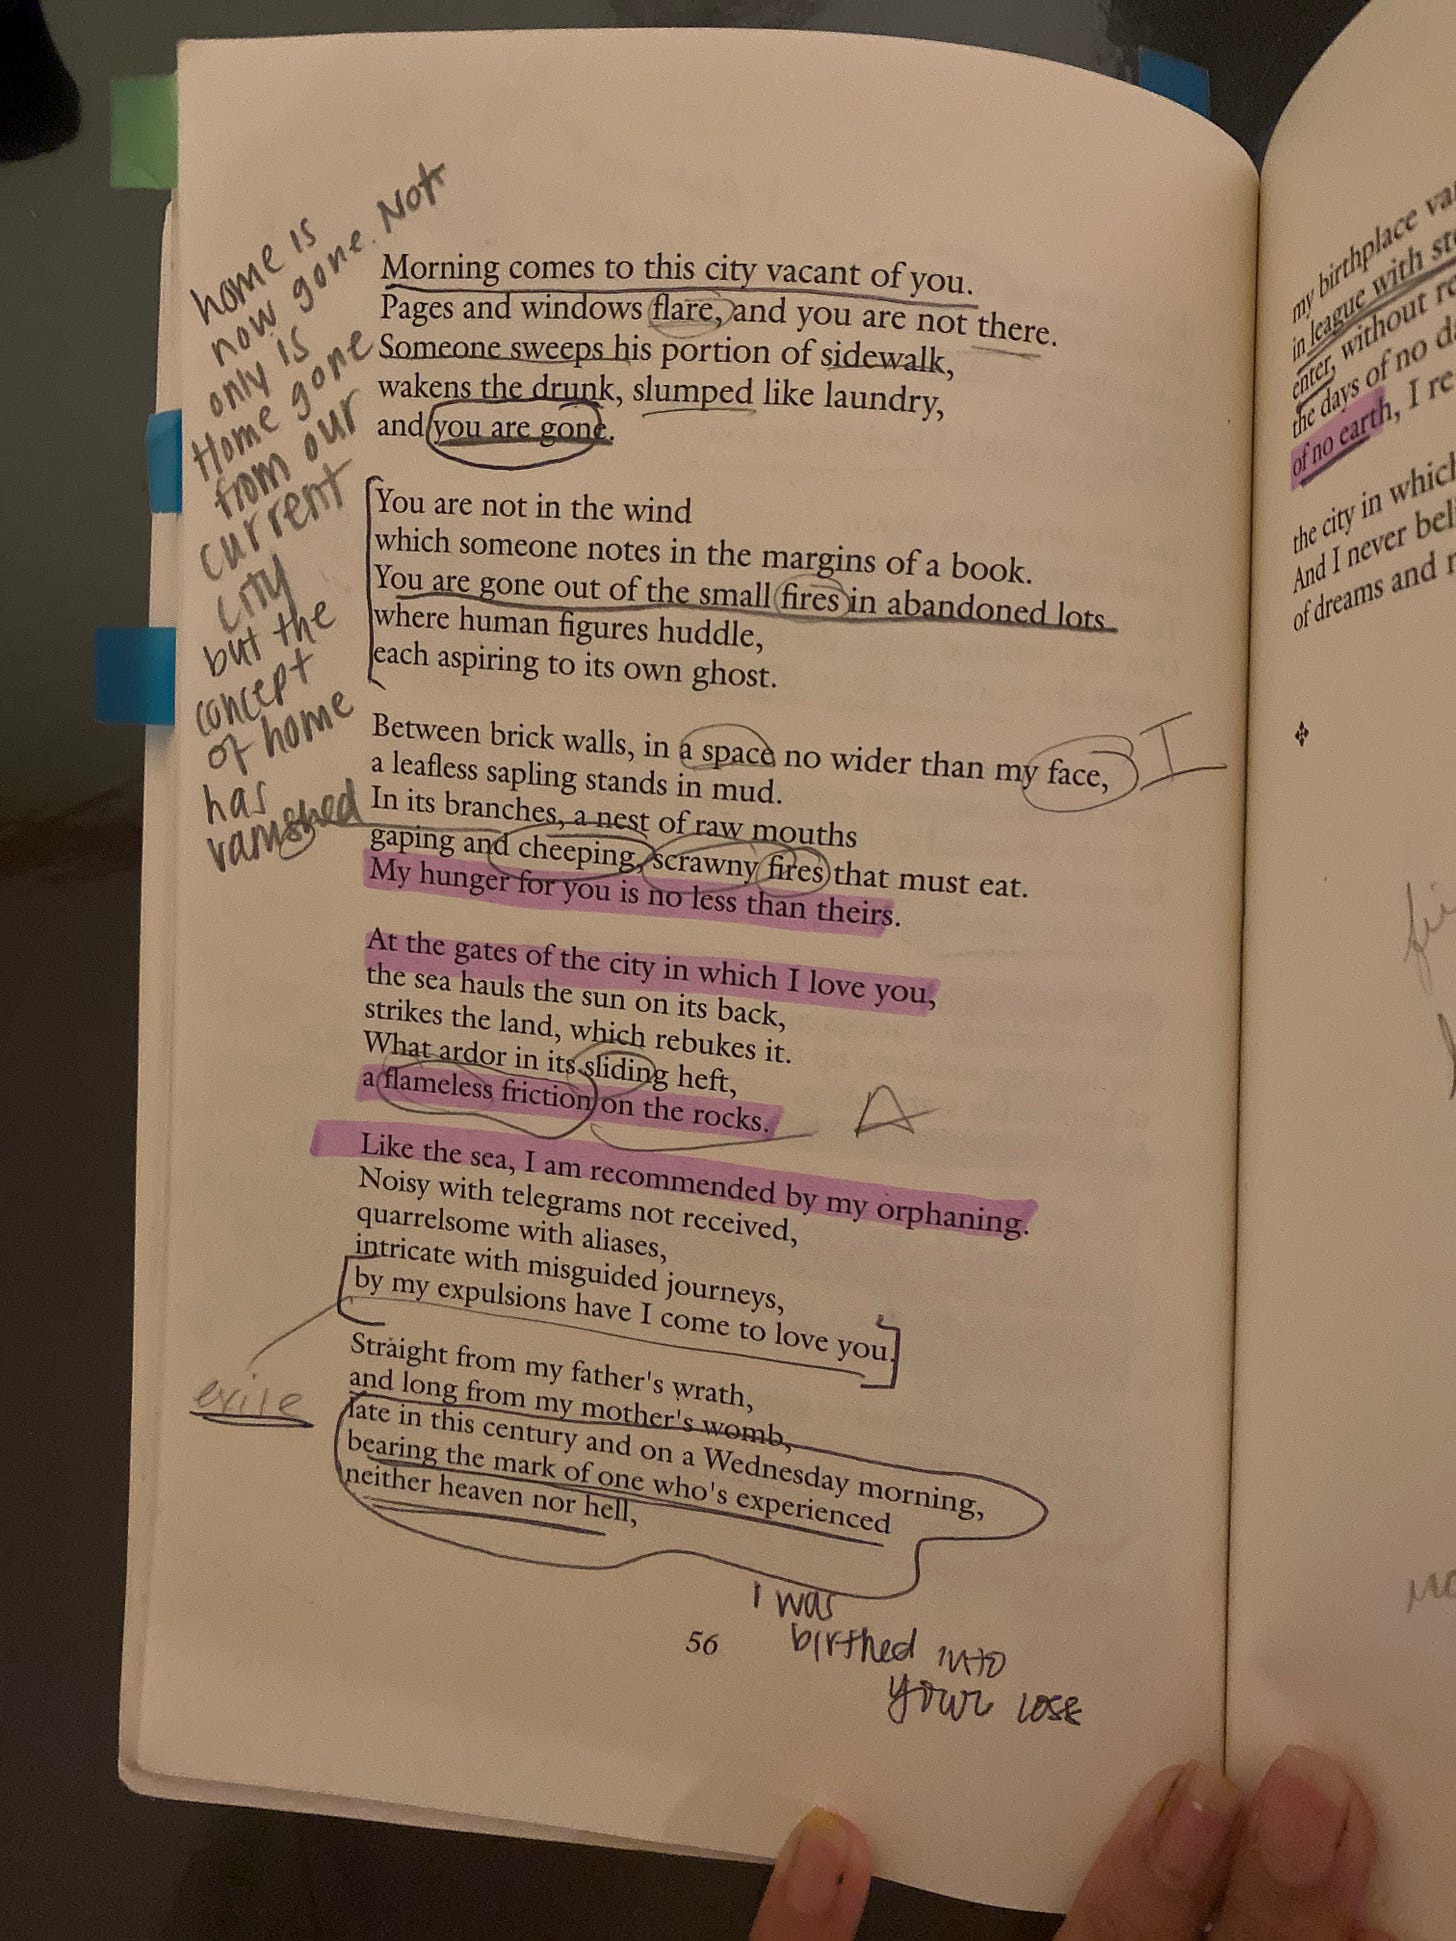 home is
now gone. Not
only is
Home gone
from our
current
city
but the
concept
of home
has
vanished
Morning comes to this city vacant of you.
Pages and windows flare, and you are not there.
Someone sweeps his portion of sidewalk,
wakens the drunk, slumped like laundry,
and you are gone.
You are not in the wind
which someone notes in the margins of a book.
You are gone out of the small fires in abandoned lots
where human figures huddle,
each aspiring to its own ghost.
Between brick walls, in a space no wider than my face,
a leafless sapling stands in mud.
In its branches, a nest of raw mouths
gaping and cheeping, scrawny fires that must eat.
My hunger for you is no less than theirs.
I
At the gates of the city in which I love you,
the sea hauls the sun on its back,
strikes the land, which rebukes it.
What ardor in its sliding heft,
a flameless friction on the rocks.
A
Like the sea, I am recommended by my orphaning.
Noisy with telegrams not received,
quarrelsome with aliases,
intricate with misguided journeys,
by my expulsions have I come to love you.
exile
Straight from my father's wrath,
and long from my mother's womb,
late in this century and on a Wednesday morning,
bearing the mark of one who's experienced
neither heaven nor hell,
I was
birthed into
your lose
56
my birthplace
in league with
enter, without
the days of no
of no earth, I
the city in which
And I never
of dreams and